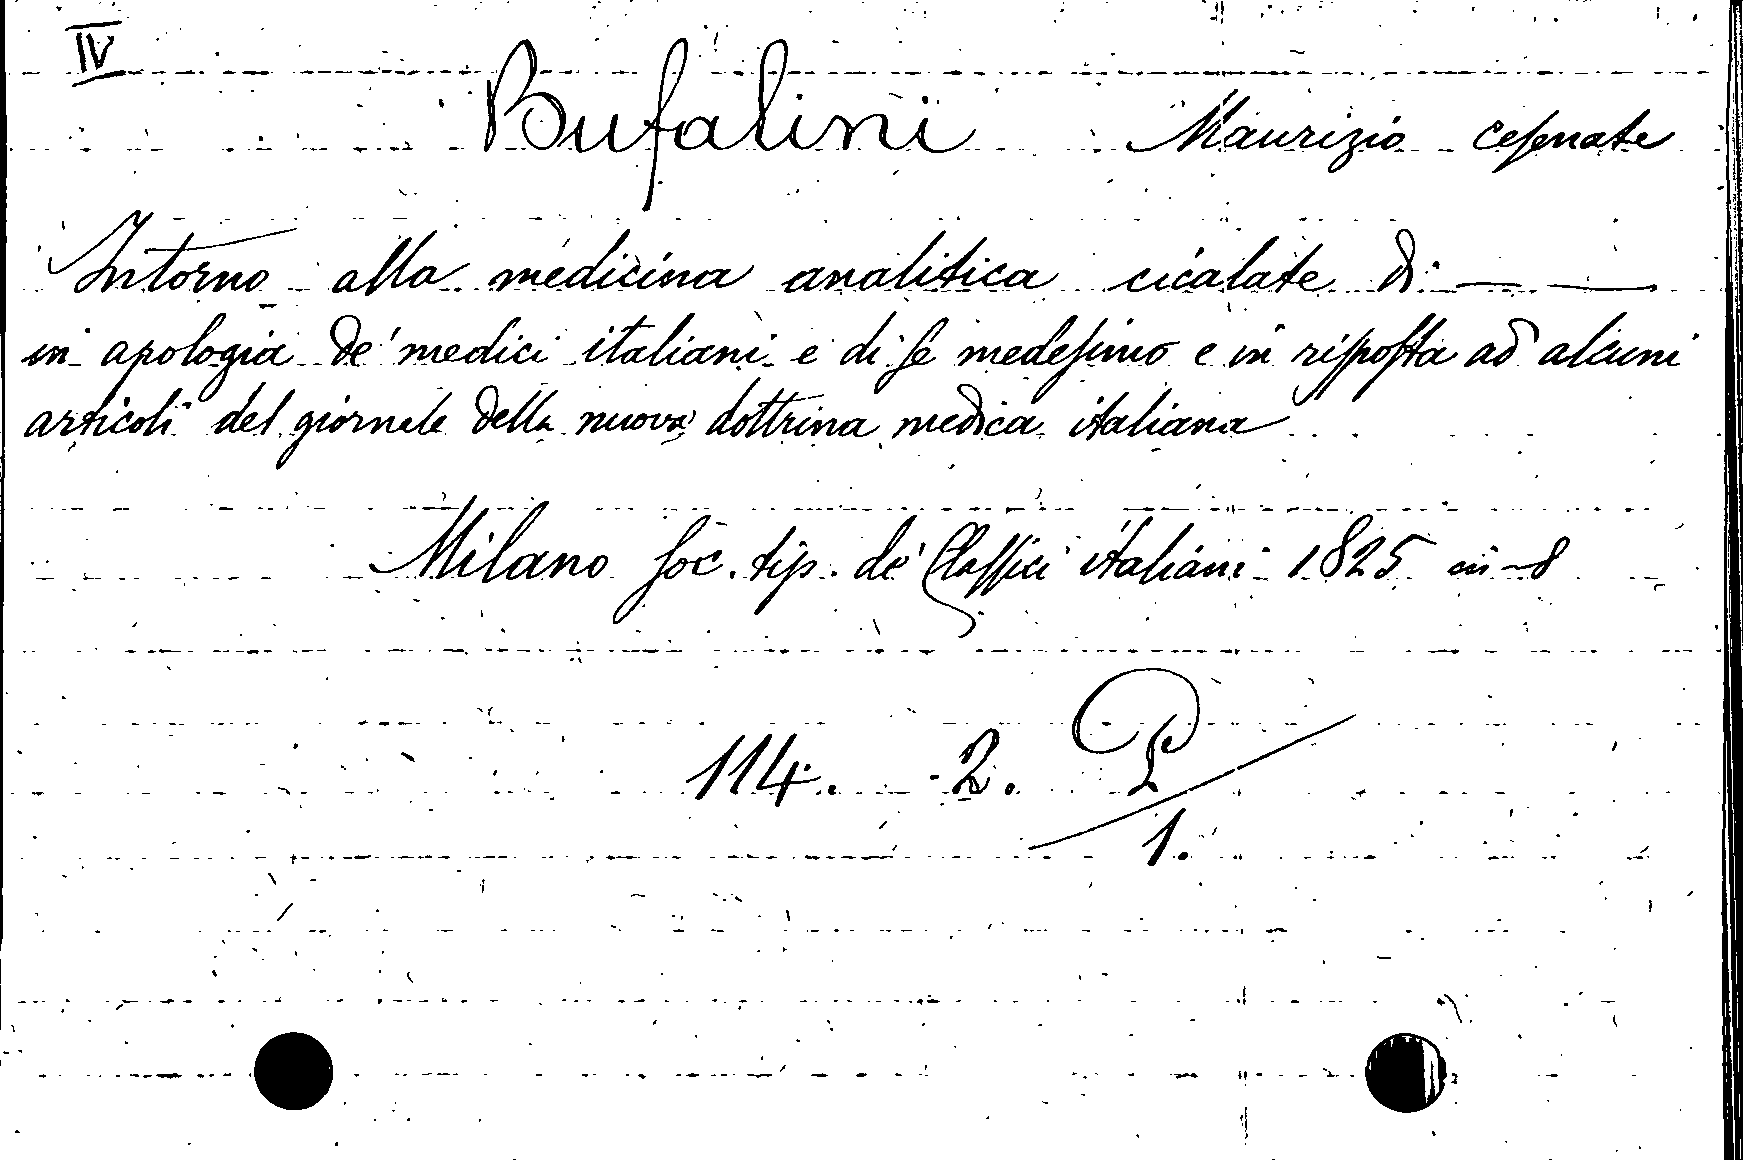 IV
Bufalini Maurizio cesenate
Intorno alla medicina analitica cicalate di — —
in apologia de' medici italiani e di se medesimo e in risposta ad alcuni
articoli del giornale della nuova dottrina medica italiana
Milano soc. tip. de' Classici italiani 1825 in-8
114. 2. P
1.